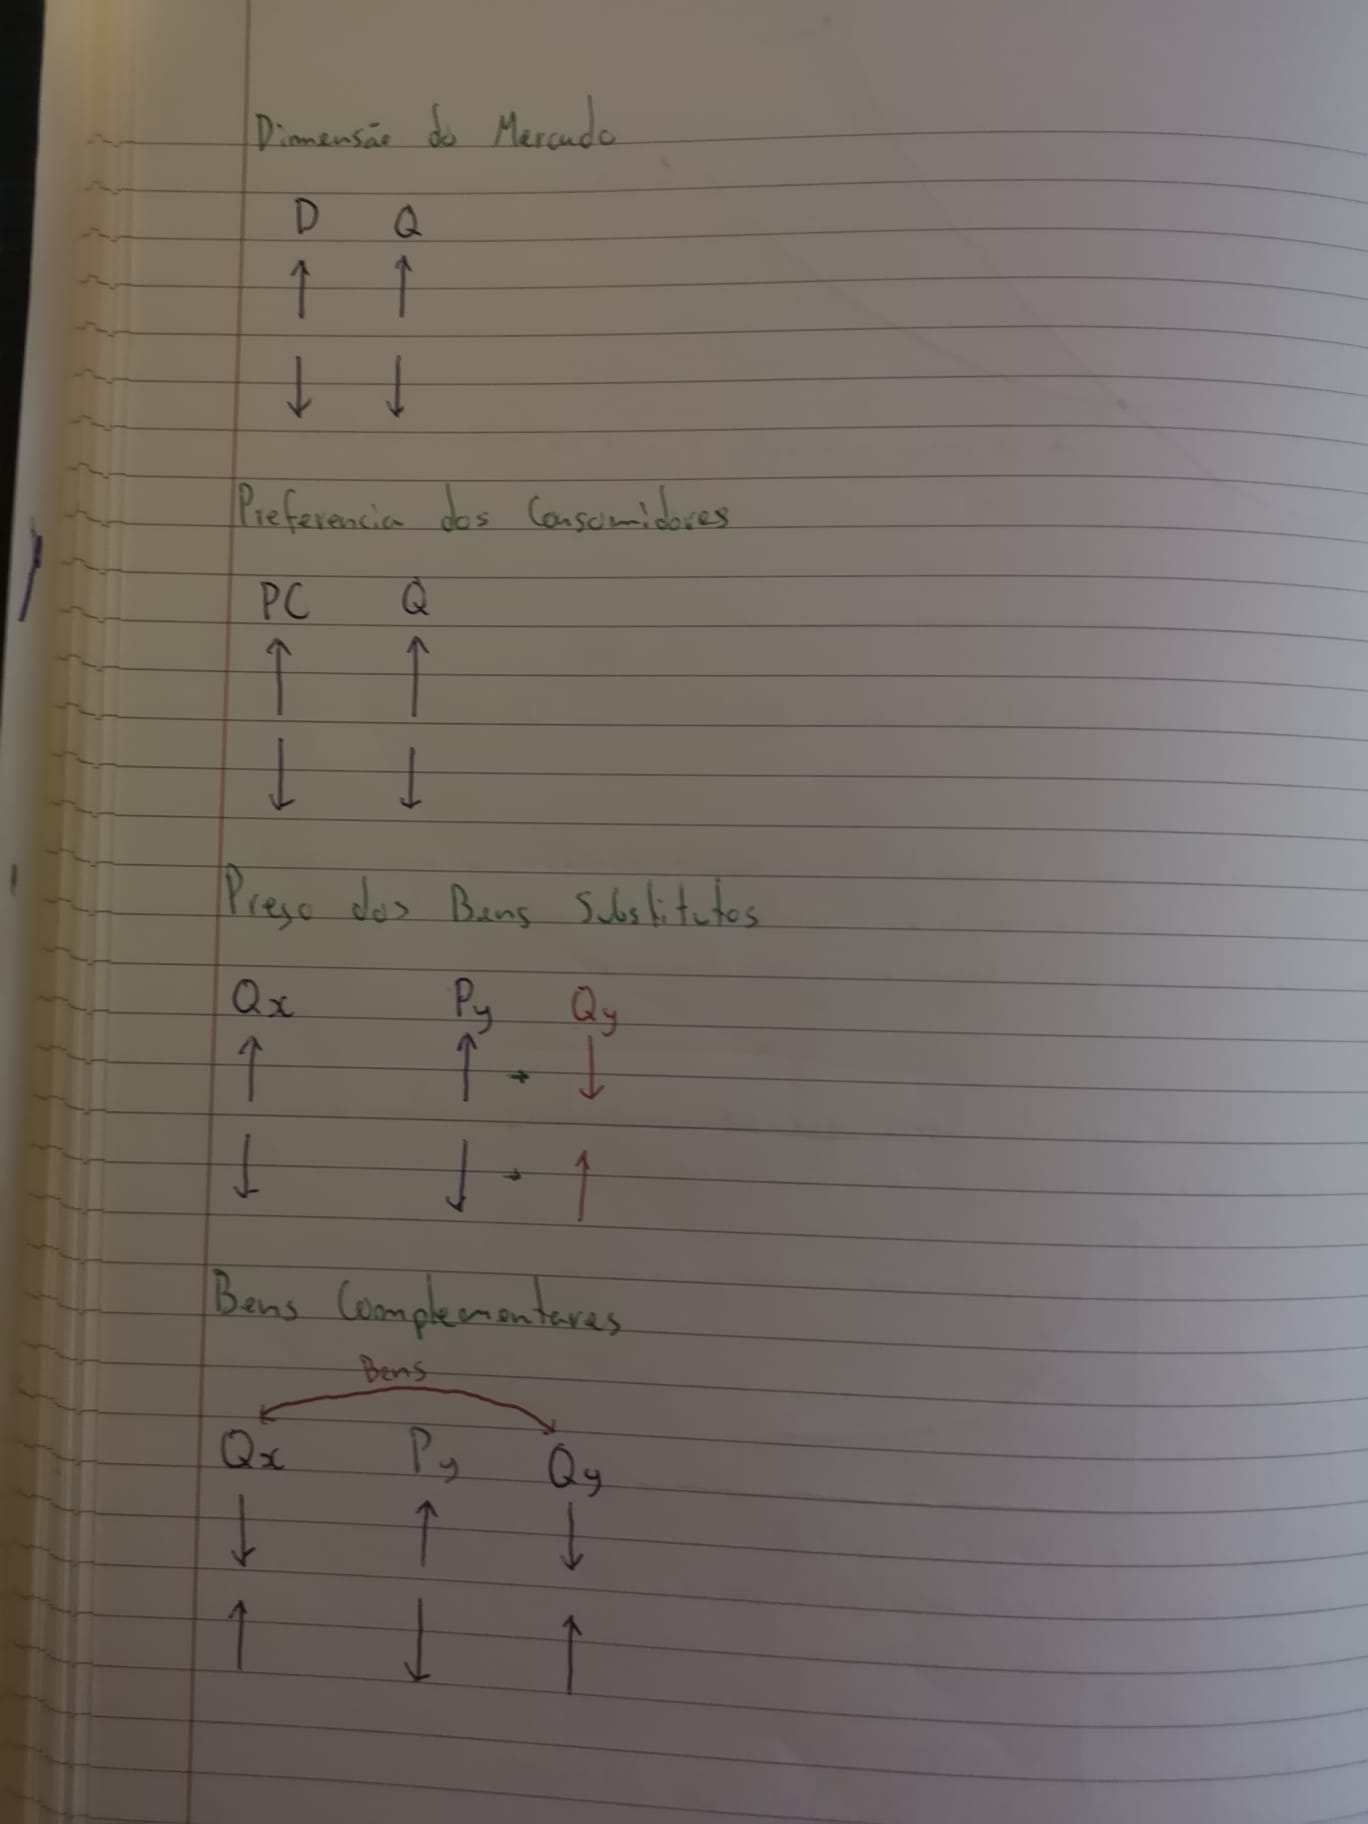 Dimensão do Mercado
D Q
↑ ↑
↓ ↓
Preferencia dos Consumidores
PC Q
↑ ↑
↓ ↓
Preço dos Bens Substitutos
Qx Py Qy
↑ ↑ → ↓
↓ ↓ → ↑
Bens Complementares
Bens
Qx Py Qy
↓ ↑ ↓
↑ ↓ ↑